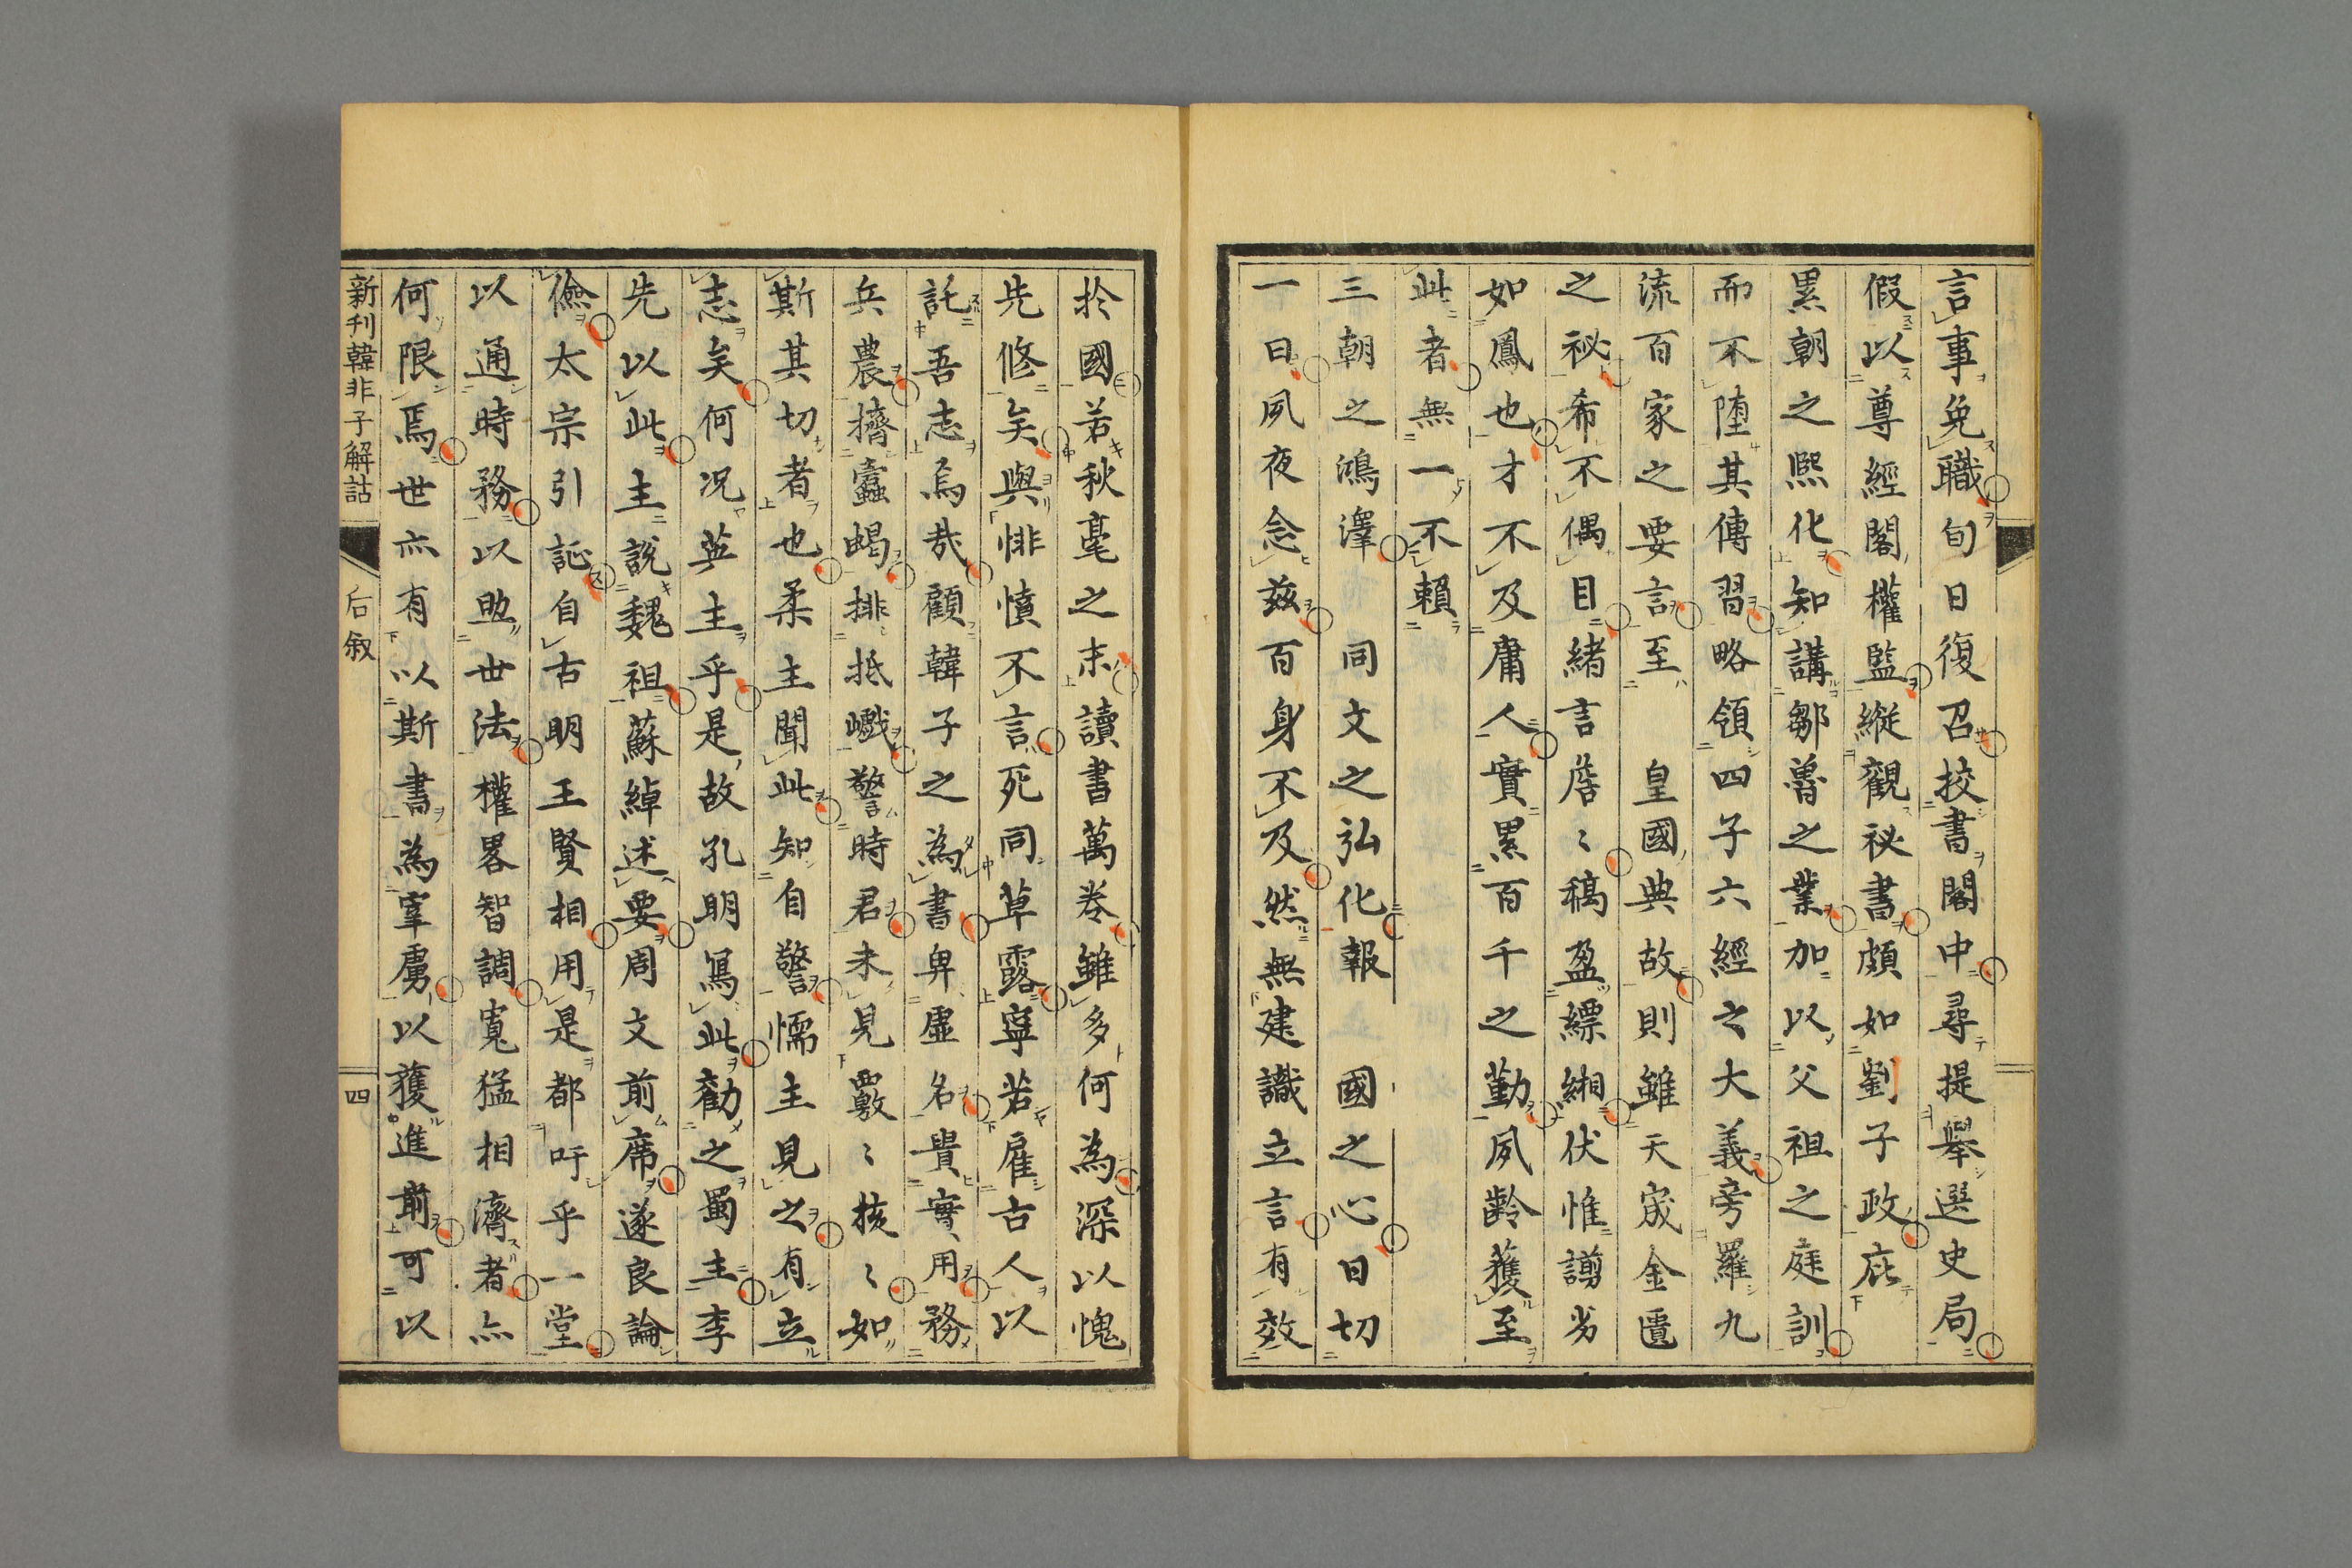 言事免職旬日復召挍書閣中尋提舉選史局
假以尊經閣權監縱觀祕書頗如劉子政庇
累朝之熙化知講鄒魯之業加以父祖之庭訓
而不墮其傳習略領四子六經之大義旁羅九
流百家之要言至 皇國典故則雖天宬金匱
之祕希不偶目緒言詹〻稿盈縹緗伏惟譾劣
如鳳也才不及庸人實累百千之勤夙齡獲至
此者無一不賴
三朝之鴻澤 同文之弘化報 國之心日切
一日夙夜念茲百身不及然無建議立言有效
於國若秋毫之末讀書萬卷雖多何為深以愧
先修矣與悱憤不言死同草露寧若雇古人以
託吾志為哉顧韓子之為書卑虛名貴實用務
兵農擠蠹蝎排抵巇警時君未見覈〻核〻如
斯其切者也柔主聞此知自警懦主見之有立
志矣何況英主乎是故孔明寫此勸之蜀主李
先以此主說魏祖蘇綽述要周文前席遂良論
儉太宗引証自古明王賢相用是都吁乎一堂
以通時務以助世法權畧智調寬猛相濟者亦
何限焉世亦有以斯書為宰虜以獲進前可以
新刊韓非子解詁 后敘 四